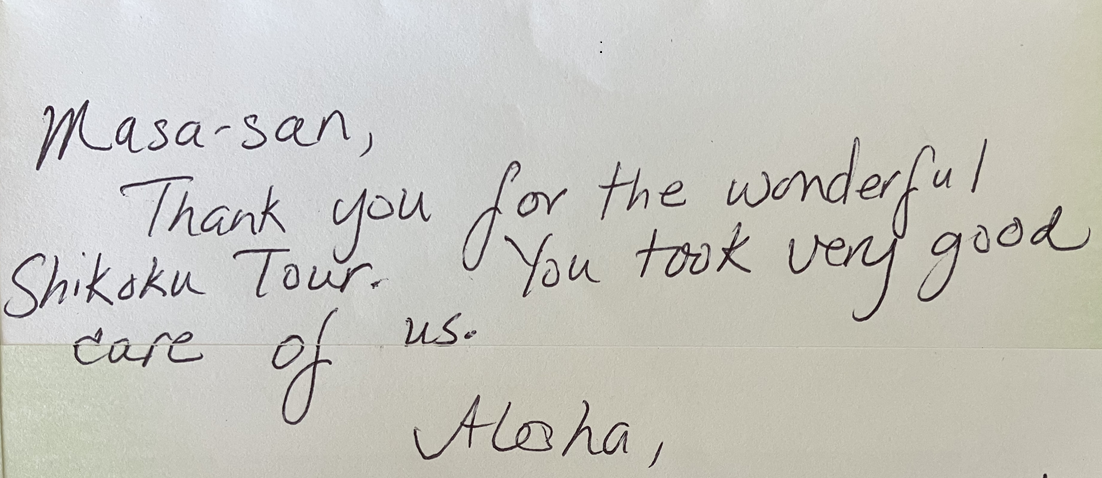 Masa-san,
Thank you for the wonderful
Shikoku Tour. You took very good
care of us.
Aloha,